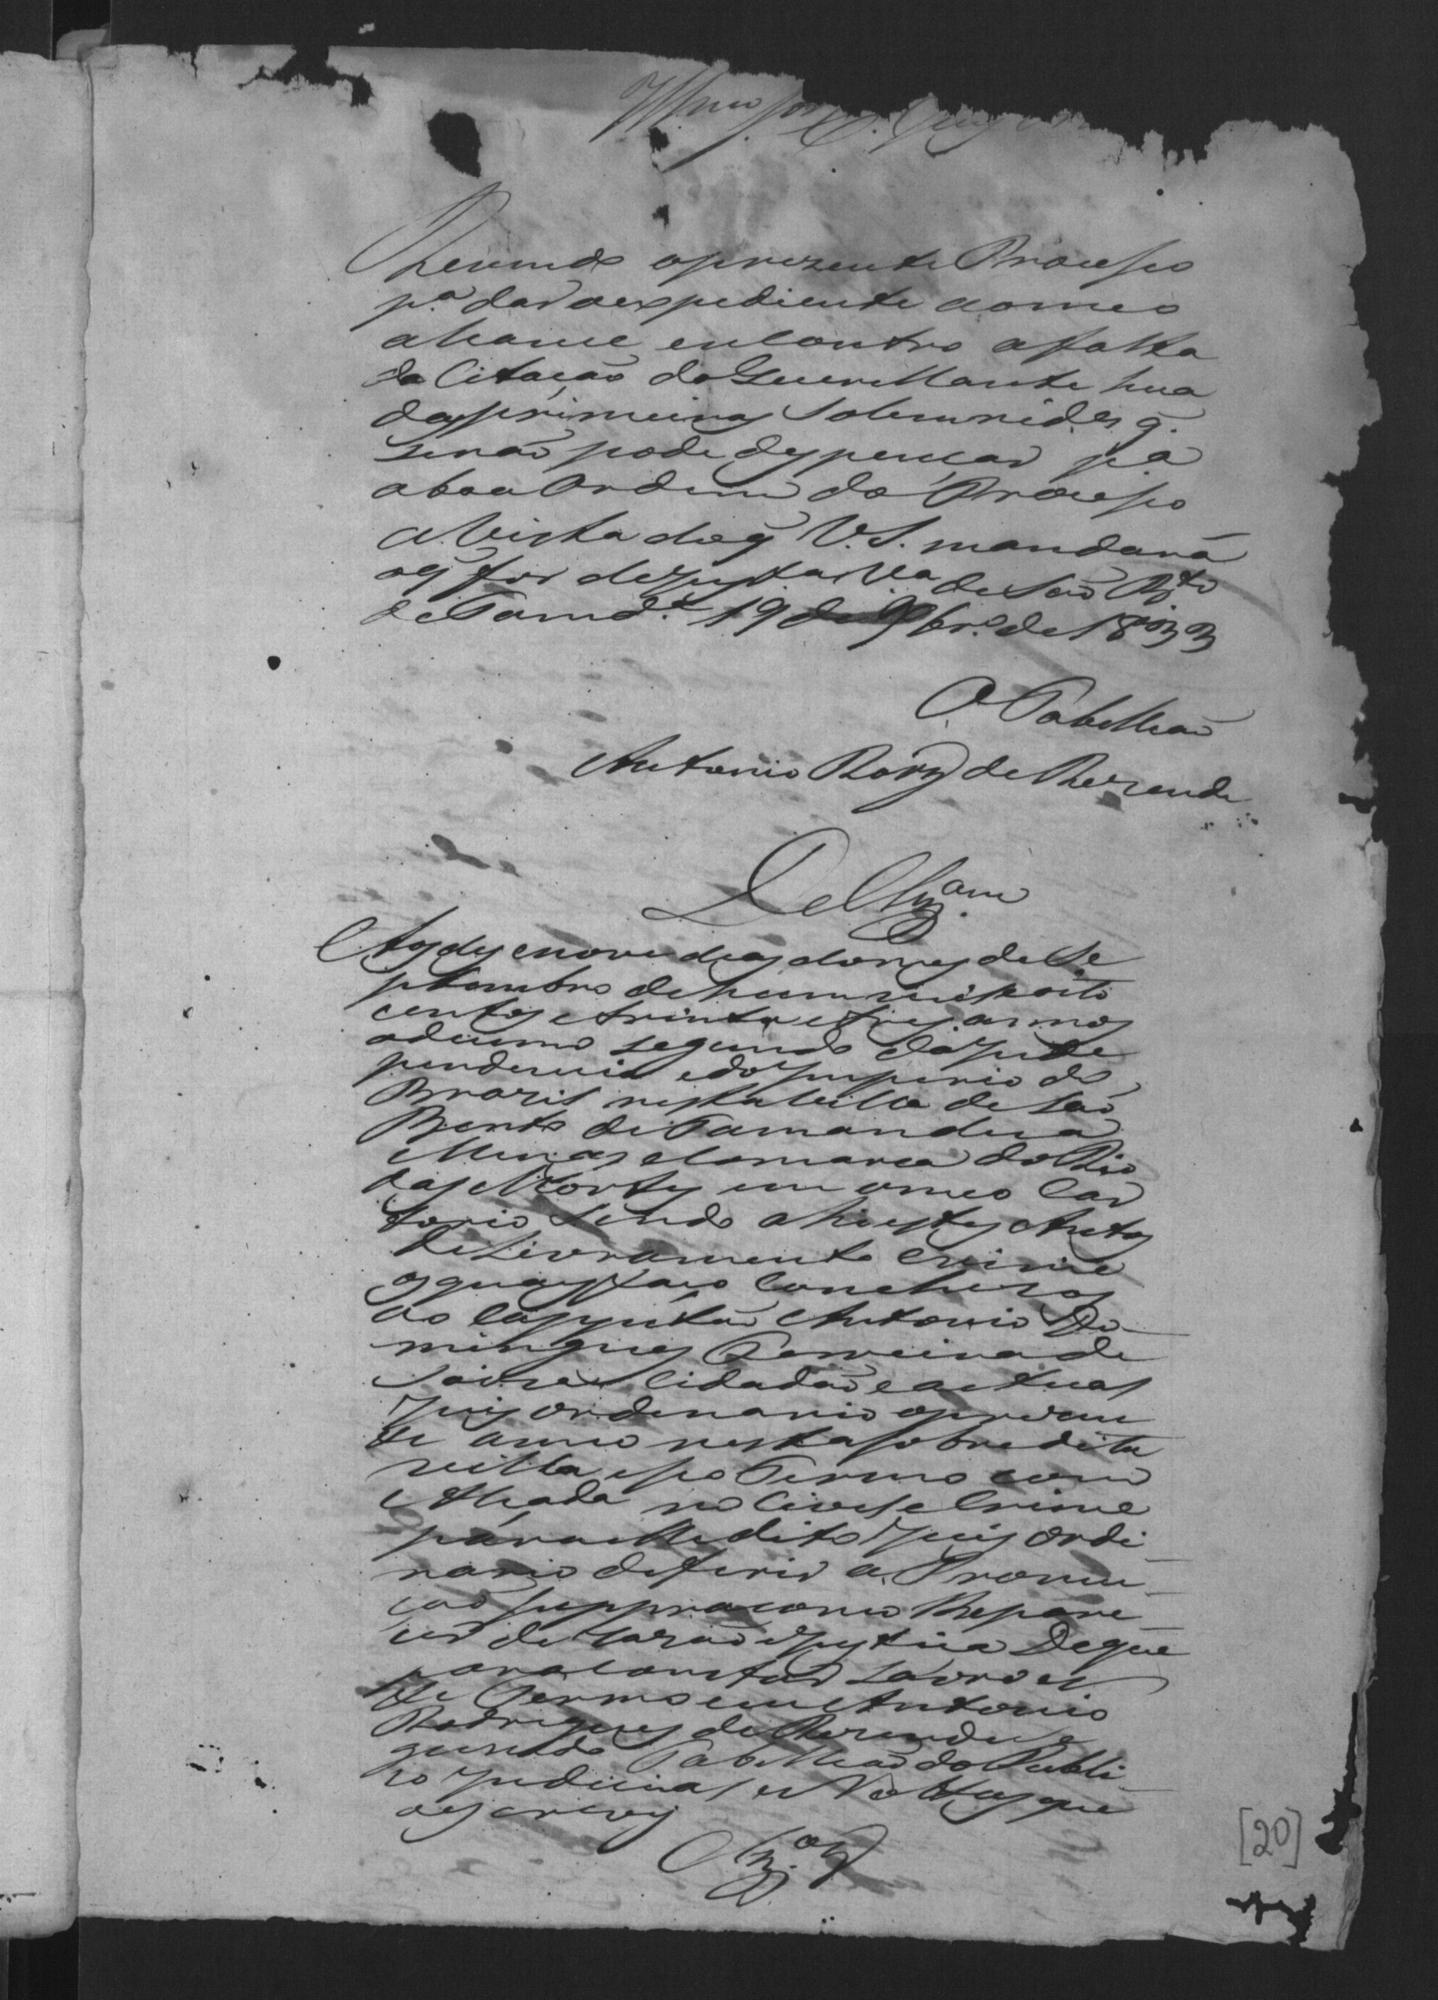 Illmo Snr. Juiz
Revendo oprezente Processo
pa. dar oexpediente aomeo
alcance encontro afalta
da Citação do Querellante hua
dasprimeiras Solemnides q.
senão pode dispensar pa.
aboa Ordem do Processo
a Vista doq̃ V.S. mandará
oq̃ for dejusta Va. de São Bto.
de Tamdã. 19 de 9brº. de 1833
O Tabelliam
Antonio Roiz de Rezende
Clzam
Aosdesenove dias domes de Se
ptembro de hum mil eoito
centos etrinta etres annos
odecimo segundo da Inde
pendencia edo Imperio do
Brazil nesta Villa de São
Bento de Tamanduá
Minas e Comarca do Rio
das Mortes em omeo Car
torio sendo ahi estes Autos
de Livramento Crime
osquaes faço Conclusos
ao Cappitão Antonio Do
mingues Ferreira de
Souza Cidadão eactual
Juis ordenario oprezen
te anno nesta sobredita
villa eseo Termo com
Alçada no Civel e Crime
para elle dito Juis Ordi
nario deferir a Promo
ção suppra como lhe pare
cer de razão eJustiça Deque
para constar Lavro es
te Termo eu Antonio
Rodrigues de Rezende se
gundo Tabelliao do Publi
co Judicial e Nottas que
oescrevy
Clzos
[20]